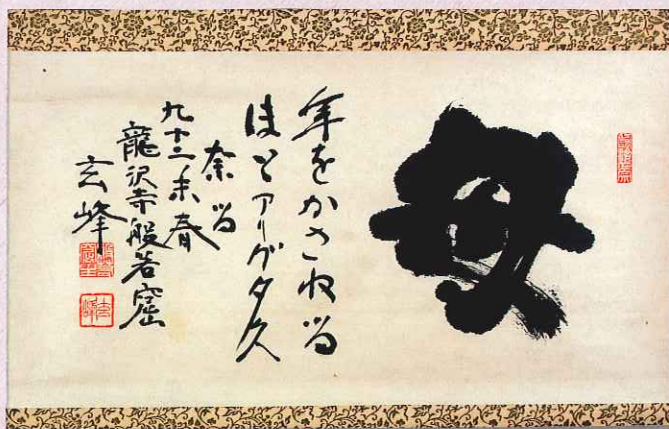 母
年をかさねる
ほとアリガタ久
奈る
九十二末春
龍沢寺般若窟
玄峰